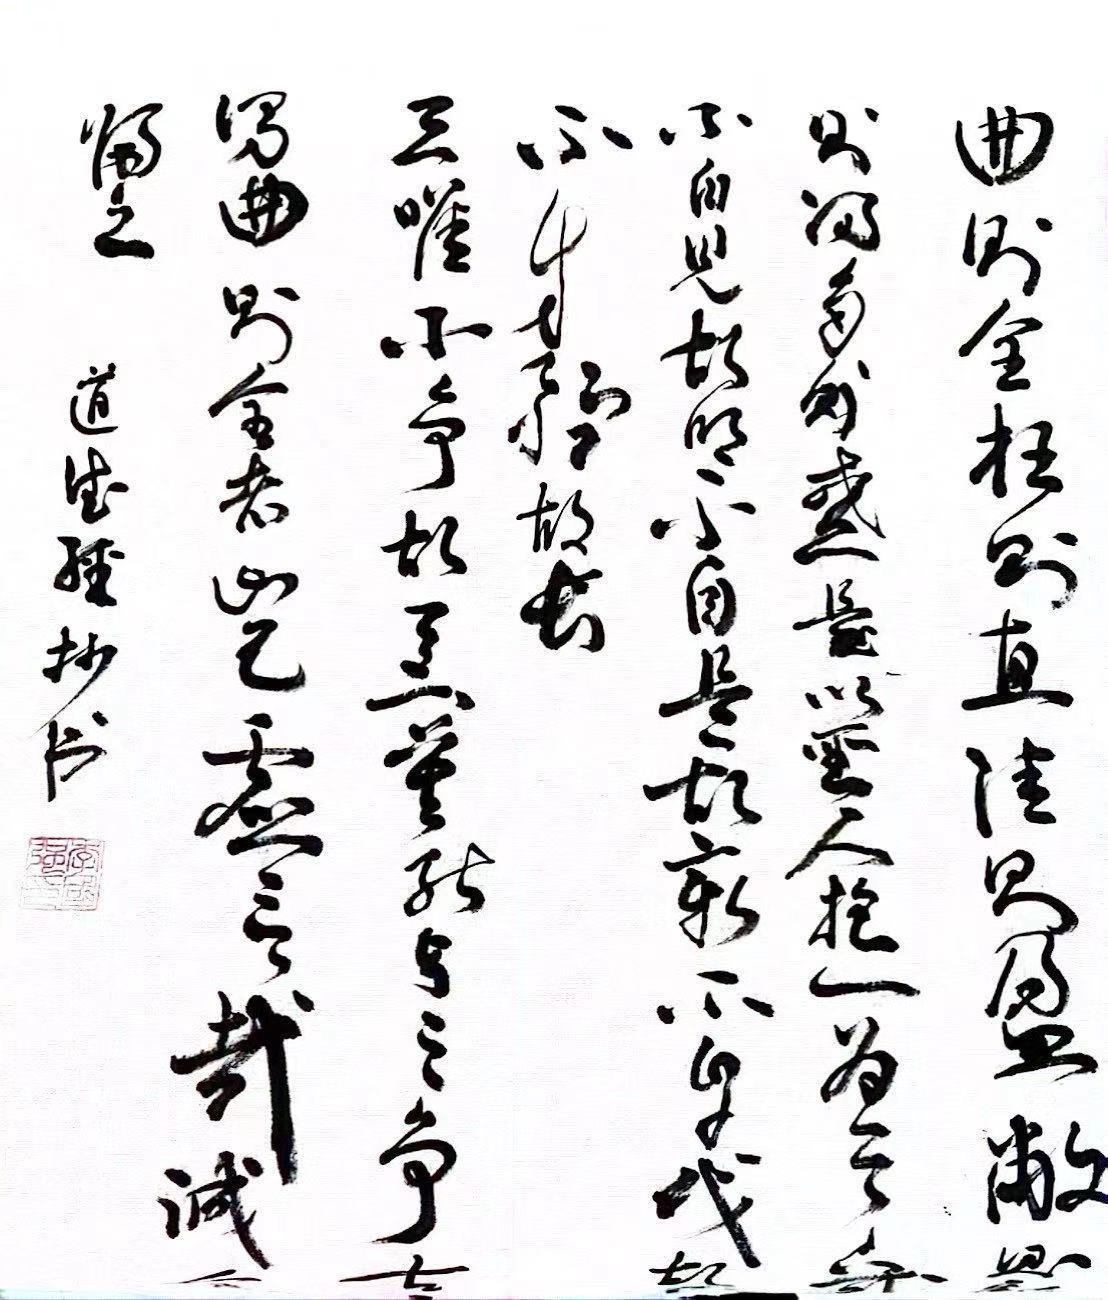 曲則全枉則直洼則盈敝則
則得多則惑是以聖人抱一為天
不自見故明不自是故彰不自伐故
不自矜故長
夫唯不爭故天下莫能與之爭古
謂曲則全者豈虛言哉誠
歸之
道德經抄书